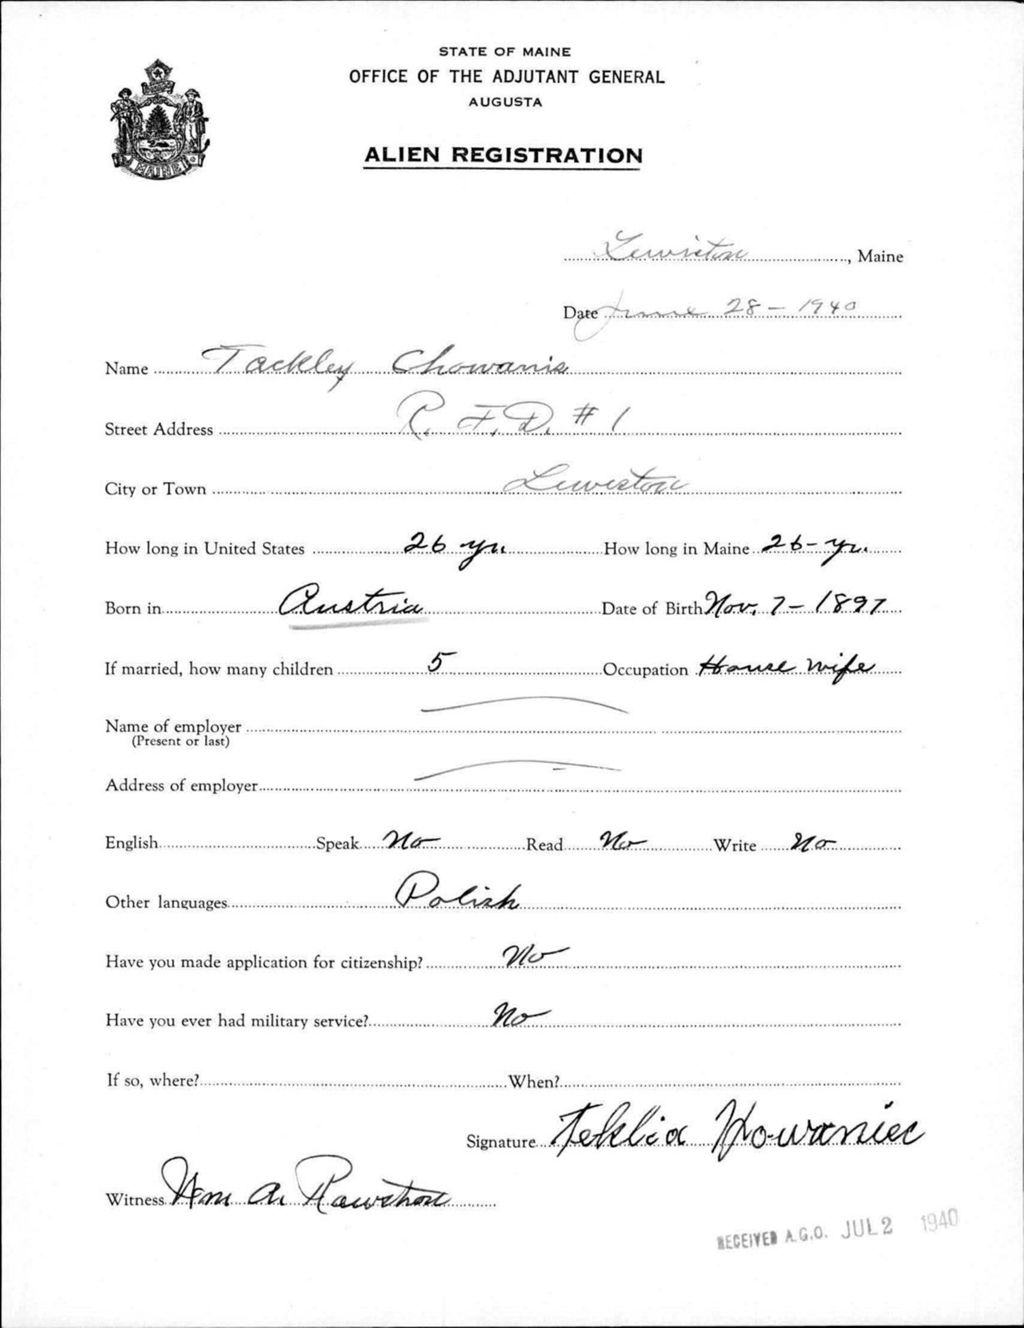 STATE OF MAINE
OFFICE OF THE ADJUTANT GENERAL
AUGUSTA
ALIEN REGISTRATION
MAINE
Lewiston, Maine
Date June 28 - 1940
Name Tackley Chowanis
Street Address R. F. D. # 1
City or Town Lewiston
How long in United States 26 yrs. How long in Maine 26 - yrs.
Born in Austria Date of Birth Nov. 7 - 1897
If married, how many children 5 Occupation House wife
Name of employer
(Present or last)
Address of employer
English Speak No Read No Write No
Other languages Polish
Have you made application for citizenship? No
Have you ever had military service? No
If so, where? When?
Signature Teklia
Witness Wm A. Rawstron
RECEIVED A.G.O. JUL 2 1940